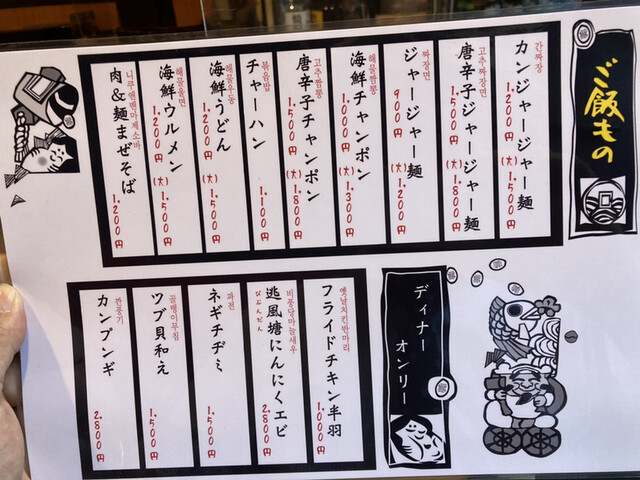 ご飯もの
간짜장
カンジャージャー麺
1,200円 (大) 1,500円
고추짜장면
唐辛子ジャージャー麺
1,500円 (大) 1,800円
짜장면
ジャージャー麺
900円 (大) 1,200円
해물짬뽕
海鮮チャンポン
1,000円 (大) 1,300円
고추짬뽕
唐辛子チャンポン
1,500円 (大) 1,800円
볶음밥
チャーハン
1,100円
해물우동
海鮮うどん
1,200円 (大) 1,500円
해물울면
海鮮ウルメン
1,200円 (大) 1,500円
니쿠앤멘마제소바
肉&麺まぜそば
1,200円
ディナー
オンリー
옛날치킨반마리
フライドチキン半羽
1,000円
비풍당마늘새우
逃風塘にんにくエビ
ひふんだん
2,800円
파전
ネギチヂミ
1,500円
골뱅이무침
ツブ貝和え
1,500円
깐풍기
カンプンギ
2,800円